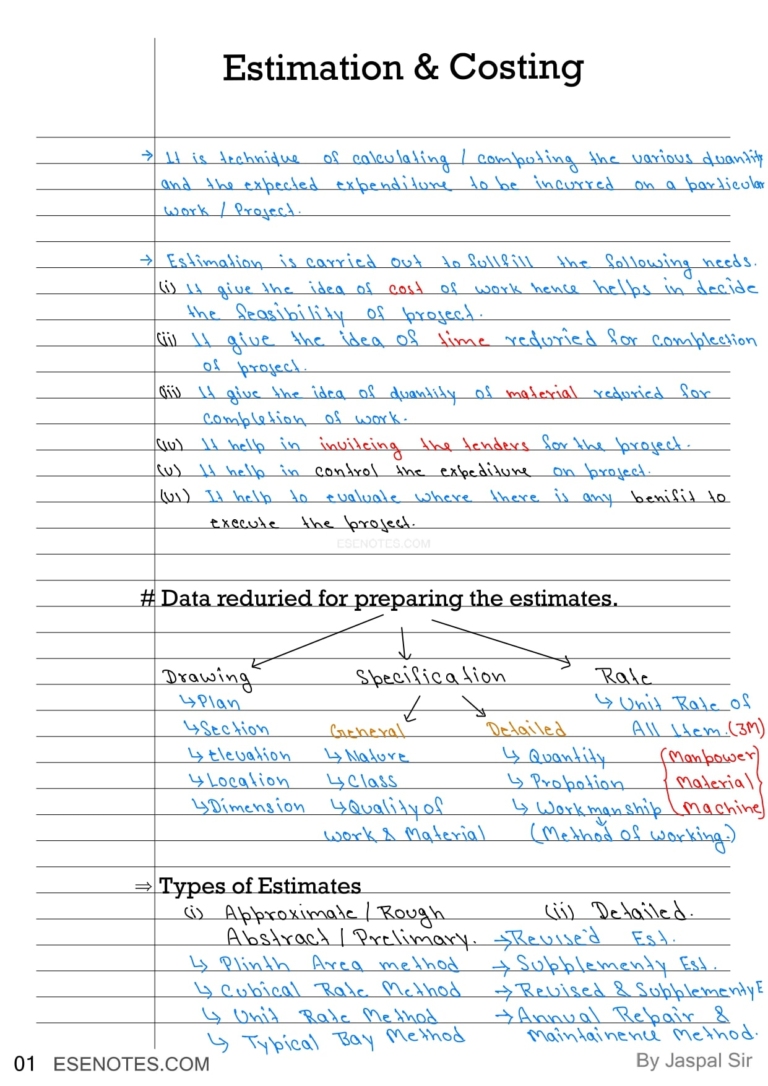 Estimation & Costing
→ It is technique of calculating / computing the various quantity
and the expected expenditure to be incurred on a particular
work / Project.
→ Estimation is carried out to fullfill the following needs.
(i) It give the idea of cost of work hence helps in decide
the feasibility of project.
(ii) It give the idea of time requried for complection
of project.
(iii) It give the idea of quantity of material requried for
completion of work.
(iv) It help in inviteing the tenders for the project.
(v) It help in control the expediture on project.
(vi) It help to evaluate where there is any benifit to
execute the project.
ESENOTES.COM
# Data reduried for preparing the estimates.
Drawing Specification Rate
↳ Plan ↳ Unit Rate of
↳ Section General Detailed All Item. (3M)
↳ Elevation ↳ Nature ↳ Quantity (Manpower)
↳ Location ↳ Class ↳ Propotion Material
↳ Dimension ↳ Quality of ↳ Workmanship Machine
work & Material (Method of working.)
⇒ Types of Estimates
(i) Approximate / Rough (ii) Detailed.
Abstract / Prelimary. → Revise'd Est.
↳ Plinth Area method → Supplementy Est.
↳ Cubical Rate Method → Revised & Supplementy E
↳ Unit Rate Method → Annual Repair &
↳ Typical Bay Method Maintainence Method.
01 ESENOTES.COM By Jaspal Sir